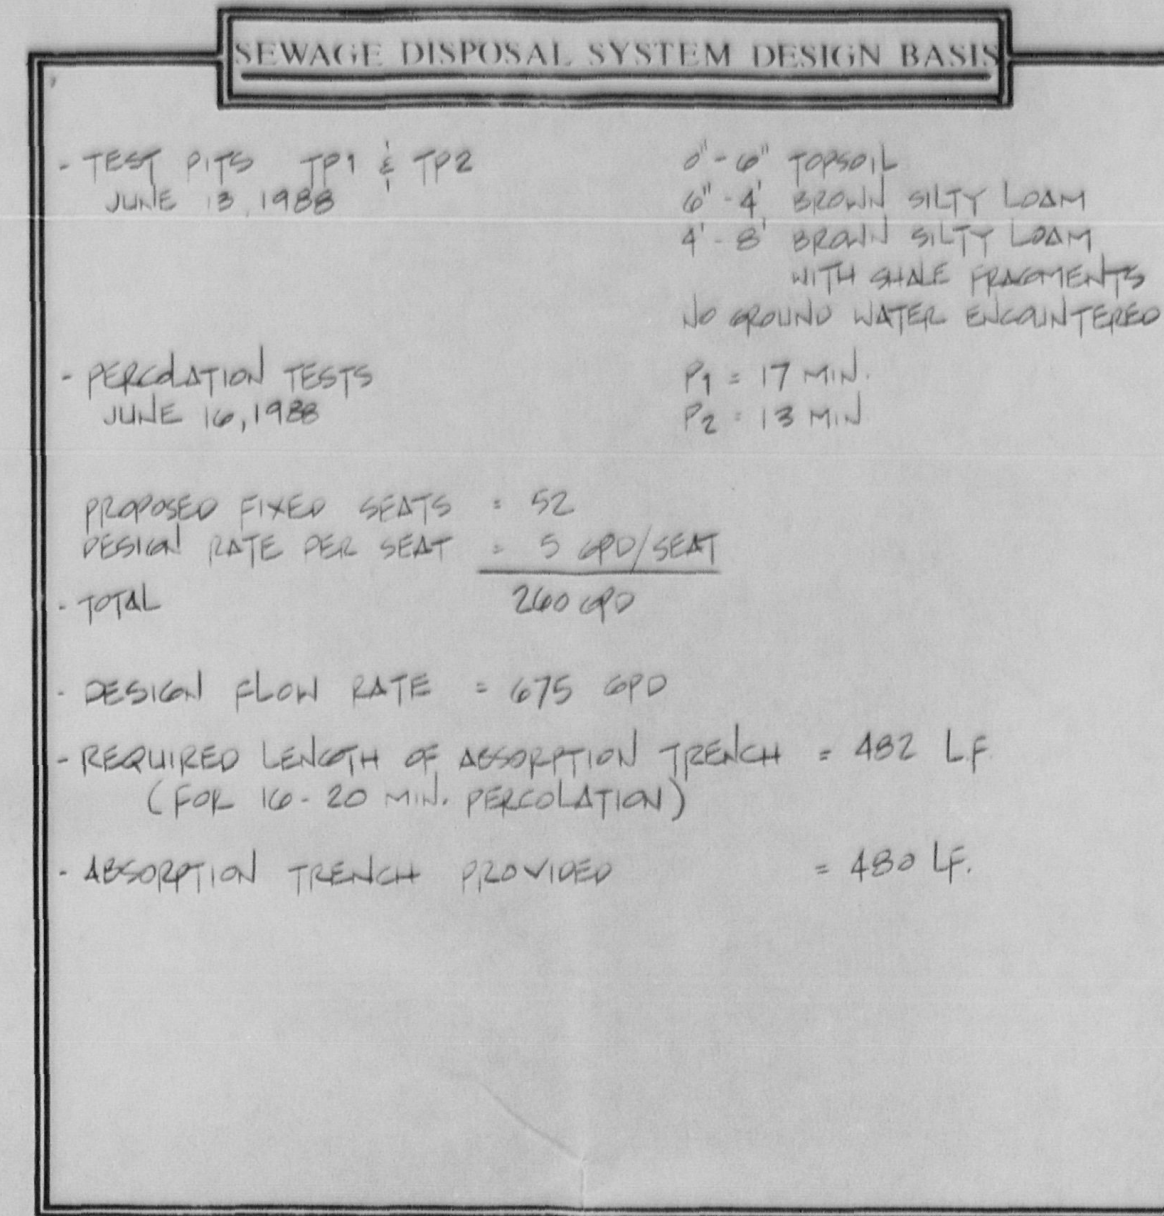 SEWAGE DISPOSAL SYSTEM DESIGN BASIS
- TEST PITS TP1 & TP2
JUNE 13, 1988
0" - 6" TOPSOIL
6" - 4' BROWN SILTY LOAM
4' - 8' BROWN SILTY LOAM
WITH SHALE FRAGMENTS
NO GROUND WATER ENCOUNTERED
- PERCOLATION TESTS
JUNE 16, 1988
P1 = 17 MIN.
P2 = 13 MIN
PROPOSED FIXED SEATS = 52
DESIGN RATE PER SEAT = 5 GPD/SEAT
- TOTAL 260 GPD
- DESIGN FLOW RATE = 675 GPD
- REQUIRED LENGTH OF ABSORPTION TRENCH = 482 L.F.
(FOR 16 - 20 MIN. PERCOLATION)
- ABSORPTION TRENCH PROVIDED = 480 LF.